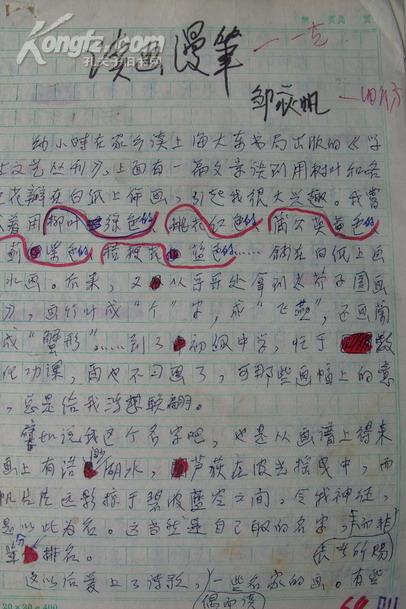 Kongfz.com
孔夫子旧书网
读画漫笔
邹荻帆
幼小时在家乡读上海大东书局出版的《学
生文艺丛刊》,上面有一篇文章谈到用树叶和各
花瓣在白纸上作画,引起我很大兴趣。我尝
着用柳叶绿色的 桃花红色的 蒲公英黄色的
到 紫色的 蓝色的……作在白纸上画
水画。后来,又从 处拿到《芥子园画
,画竹叶成“个”字,或“飞燕”,还画兰
成“蟹形”……到了初级中学,忙于数
化功课,再也不习画了,可那些画幅上的意
,总是给我浮想联翩。
譬如说我这个名字吧,也是从画谱上得来
画上有浩渺湖水,芦荻在波光摇曳中,而
帆片片远影掠于碧波蓝空之间,令我神往,
是以此为名。这当然是自己取的名字,而非
辈排名。
长者所赐
这以后爱上了诗歌,一些名家的画。有些
偶而读
20×20=400